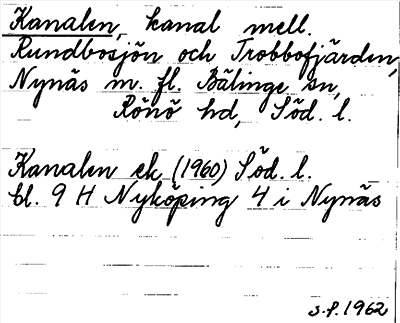 Kanalen, kanal mell.
Rundbosjön och Trobbofjärden,
Nynäs m. fl. Bälinge sn,
Rönö hd, Söd. l.
Kanalen ek (1960) Söd. l.
bl. 9 H Nyköping 4 i Nynäs
s.f. 1962